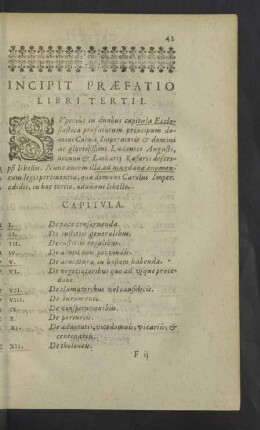 42
INCIPIT PRÆFATIO
LIBRI TERTII.
SVperius in duobus capitula Eccle-
siastica præfatorum principum do-
mini Caroli Imperatoris & domini
ac gloriosissimi Ludouici Augusti,
necnon & Lotharij Cæsaris descrip-
si libellis. Nunc autem illa ad mundanæ augmen-
tum legis pertinentia, quæ dominus Carolus Imper.
edidit, in hoc tertio adunaui libello.
CAPITVLA.
I. De pace conseruanda.
II. De iustitiis generalibus.
III. De iustitiis regalibus.
IV. De armis non portandis.
V. De armatura in hostem habenda.
VI. De negotiatoribus quo ad vsque proce-
dant.
VII. De clamatoribus vel causidicis.
VIII. De iuramentis.
IX. De conspirationibus.
X. De periuriis.
XI. De aduocatis, vicedominis, vicariis, &
centenariis.
XII. De theloneis.
F ij